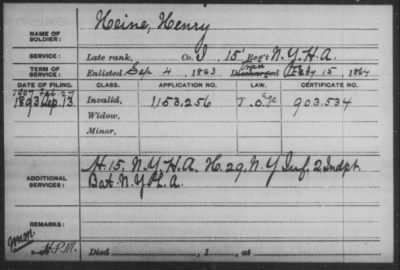 Heine, Henry
NAME OF SOLDIER:
SERVICE: Late rank, Co. I, 15' Reg't N.Y.H.A.
TERM OF SERVICE: Enlisted Sep 4, 1863 Discharged Feby 15, 1864
DATE OF FILING. CLASS. APPLICATION NO. LAW. CERTIFICATE NO.
1907 Feb.
1893 Sep. 13 Invalid, 1153,256 age 903.534
Widow,
Minor,
ADDITIONAL SERVICES: H. 15, N.Y.H.A. H. 29, N.Y. Inf. 2 Indpt
Bat. N.Y. L. A.
REMARKS:
H.P.M.
Died , 1 , at